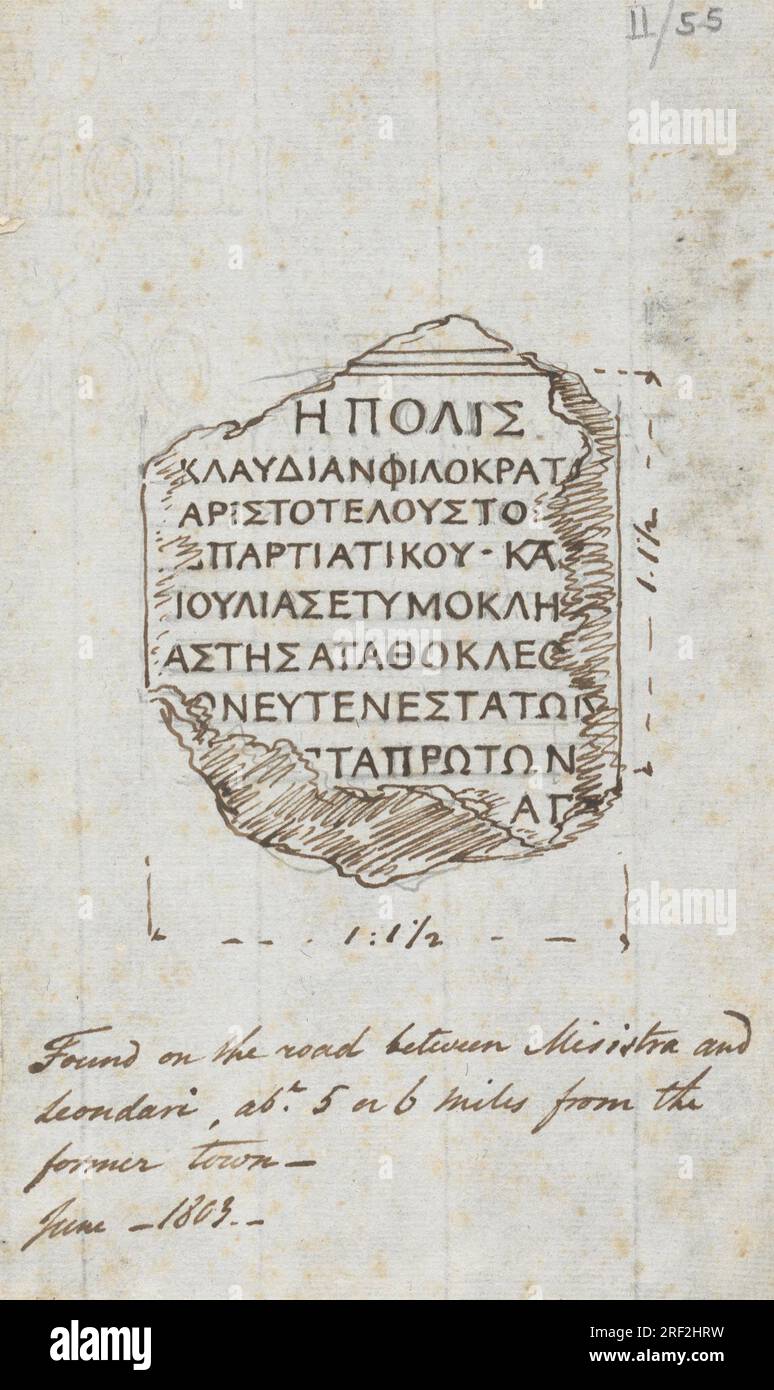 II/55
Η ΠΟΛΙΣ
ΚΛΑΥΔΙΑΝΦΙΛΟΚΡΑΤ
ΑΡΙΣΤΟΤΕΛΟΥΣΤΟ
ΠΑΡΤΙΑΤΙΚΟΥ - ΚΑ
ΙΟΥΛΙΑΣΕΤΥΜΟΚΛΗ
ΑΣΤΗΣΑΓΑΘΟΚΛΕΟ
ΟΝΕΥΓΕΝΕΣΤΑΤΩΝ
ΤΑΠΡΩΤΩΝ
ΑΓ
1.1½
1:1½
Found on the road between Misistra and
Leondari, abt. 5 or 6 miles from the
former town —
June - 1803. -
alamy
alamy
alamy
alamy
alamy
Image ID: 2RF2HRW
www.alamy.com